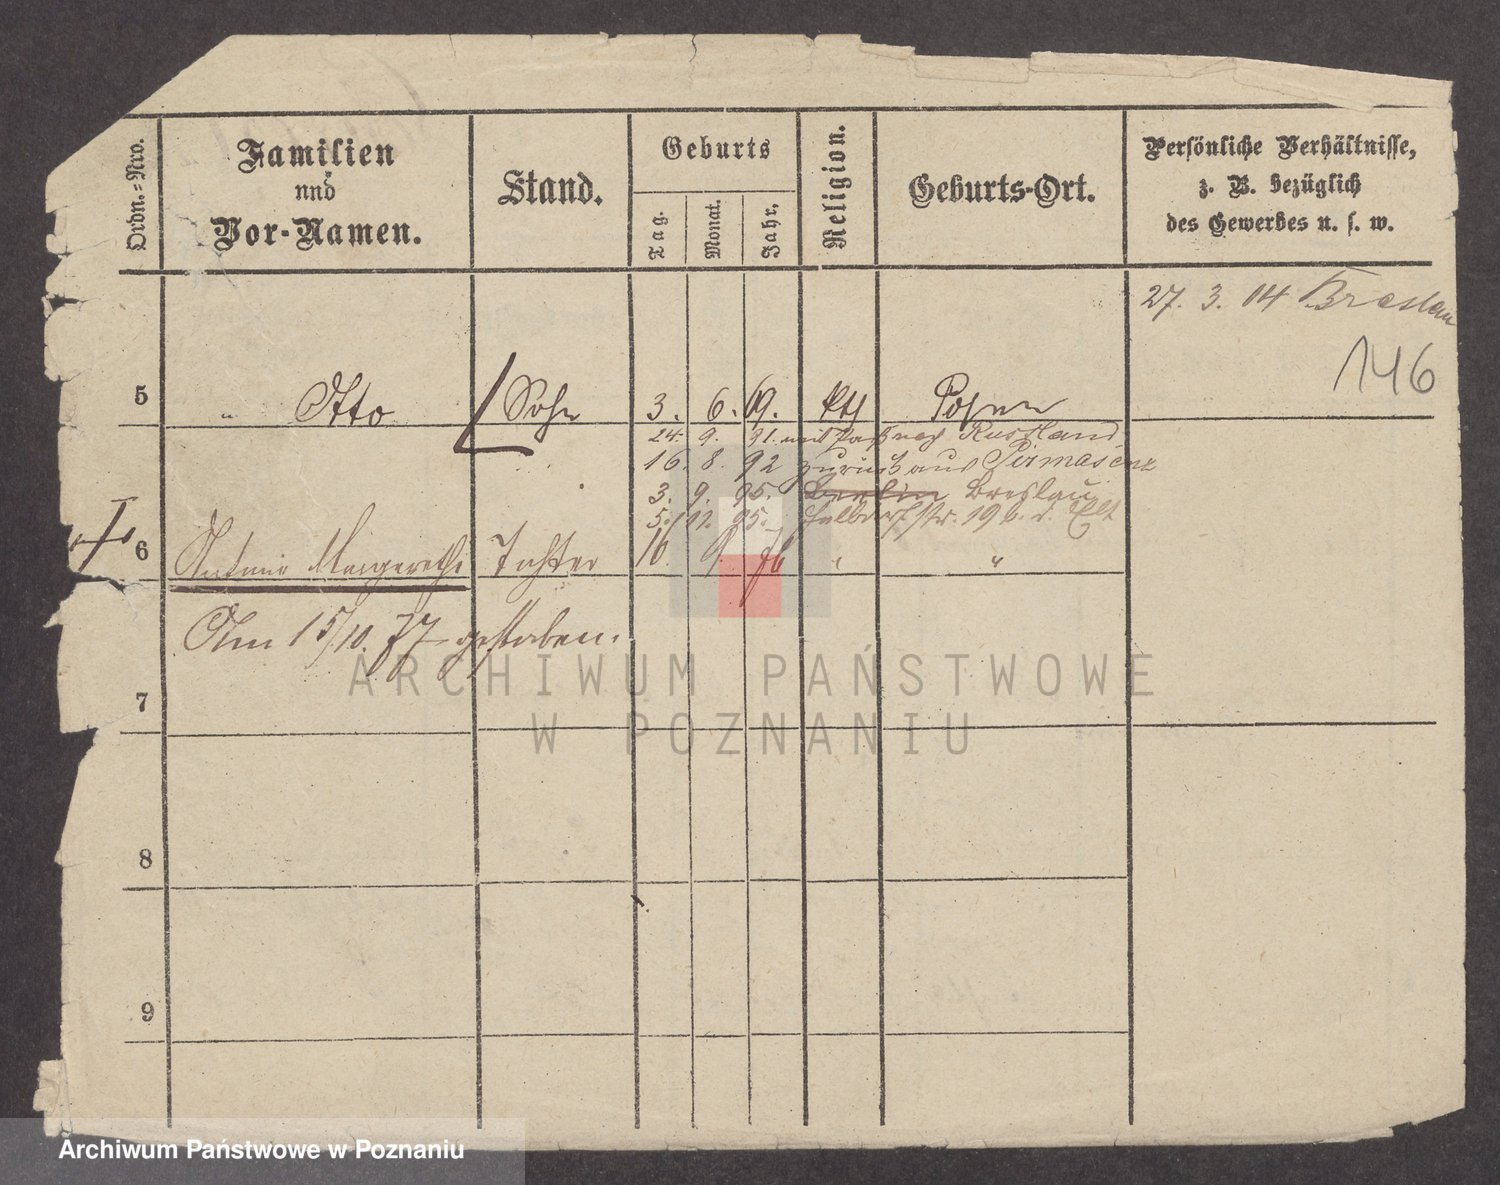 Ordn.=Nro.
Familien
und
Vor-Namen.
Stand.
Geburts
Tag.
Monat.
Jahr.
Religion.
Geburts-Ort.
Persönliche Verhältnisse,
z. B. bezüglich
des Gewerbes u. s. w.
27. 3. 04 Breslau
146
5 " Otto Sohn 3. 6. 69. Posen
24. 9. 91. mit Paß nach Russland
16. 8. 92 zurück aus Pirmasenz
3. 9. 95. Berlin Breslau
5. 11. 95. 19 b. d. Elt
6 Margarethe Tochter 16. 9. 76 " "
Am 15/10. 77 gestorben.
7
8
9
ARCHIWUM PAŃSTWOWE
W POZNANIU
Archiwum Państwowe w Poznaniu